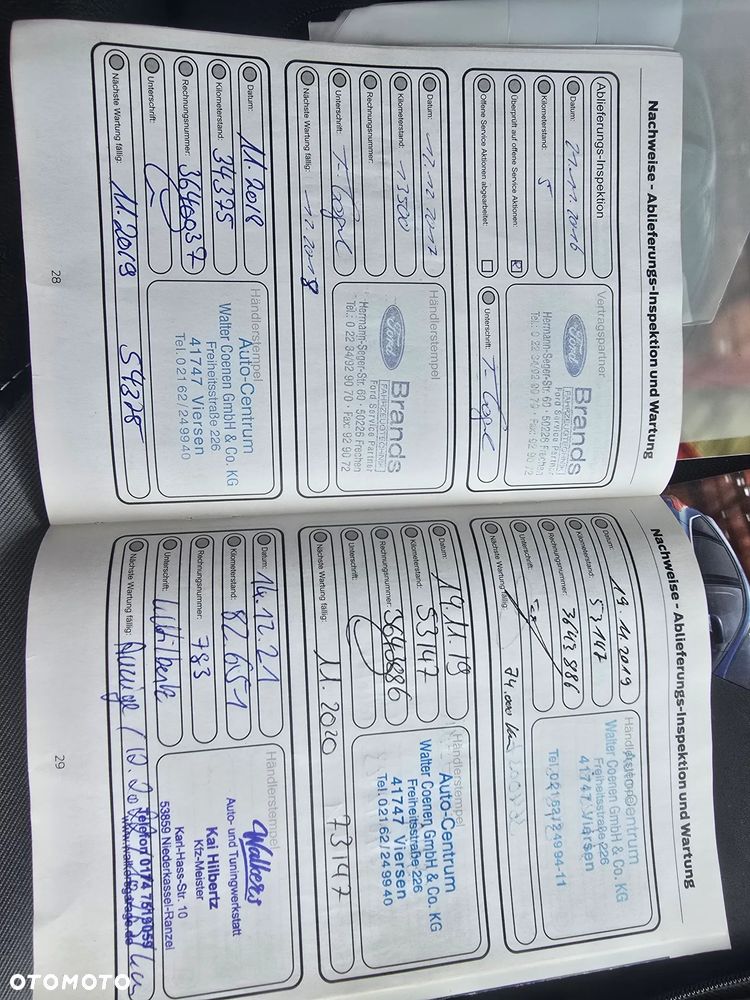 Nachweise - Ablieferungs-Inspektion und Wartung
Ablieferungs-Inspektion
Datum: 21.11.2016
Kilometerstand: 5
Überprüft auf offene Service Aktionen:
Offene Service Aktionen abgearbeitet:
Vertragspartner
Ford
Brands
FAHRZEUGTECHNIK
Ford Service Partner
Hermann-Seger-Str. 60 · 50226 Frechen
Tel.: 0 22 34/92 90 70 · Fax: 92 90 72
Unterschrift:
Datum: 12.12.2017
Kilometerstand: 13500
Rechnungsnummer:
Unterschrift:
Nächste Wartung fällig: 11.2018
Händlerstempel
Ford
Brands
FAHRZEUGTECHNIK
Ford Service Partner
Hermann-Seger-Str. 60 · 50226 Frechen
Tel.: 0 22 34/92 90 70 · Fax: 92 90 72
Datum: 11.2018
Kilometerstand: 34375
Rechnungsnummer: 3640937
Unterschrift:
Nächste Wartung fällig: 11.2019 54375
Händlerstempel
Auto-Centrum
Walter Coenen GmbH & Co. KG
Freiheitsstraße 226
41747 Viersen
Tel. 02162/249940
28
Nachweise - Ablieferungs-Inspektion und Wartung
Datum: 19.11.2019
Kilometerstand: 53147
Rechnungsnummer: 3643886
Unterschrift:
Nächste Wartung fällig: 74.000 km
Händlerstempel
Auto-Centrum
Walter Coenen GmbH & Co. KG
Freiheitsstraße 226
41747 Viersen
Tel. 02162/24994-11
Datum: 19.11.19
Kilometerstand: 53147
Rechnungsnummer: 3643886
Unterschrift:
Nächste Wartung fällig: 11.2020 73147
Händlerstempel
Auto-Centrum
Walter Coenen GmbH & Co. KG
Freiheitsstraße 226
41747 Viersen
Tel. 02162/249940
Datum: 14.12.21
Kilometerstand: 82651
Rechnungsnummer: 783
Unterschrift:
Nächste Wartung fällig: Anzeige / 12.20
Händlerstempel
Walkers
Auto- und Tuningwerkstatt
Kai Hilbertz
Kfz-Meister
Karl-Hass-Str. 10
53859 Niederkassel-Ranzel
Telefon 0174 7619059
29
OTOMOTO